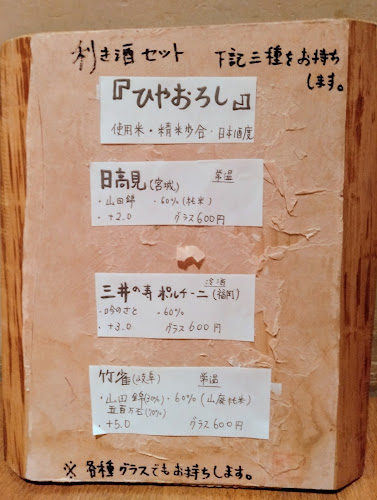 利き酒セット
下記三種をお持ち
します。
『ひやおろし』
使用米・精米歩合・日本酒度
日高見(宮城) 常温
・山田錦 ・60%(純米)
・+2.0 グラス600円
冷酒
三井の寿 ポルチーニ(福岡)
・吟のさと ・60%
・+3.0 グラス600円
竹雀(岐阜) 常温
・山田錦(30%)・60%(山廃純米)
五百万石(70%)
・+5.0 グラス600円
※各種グラスでもお持ちします。